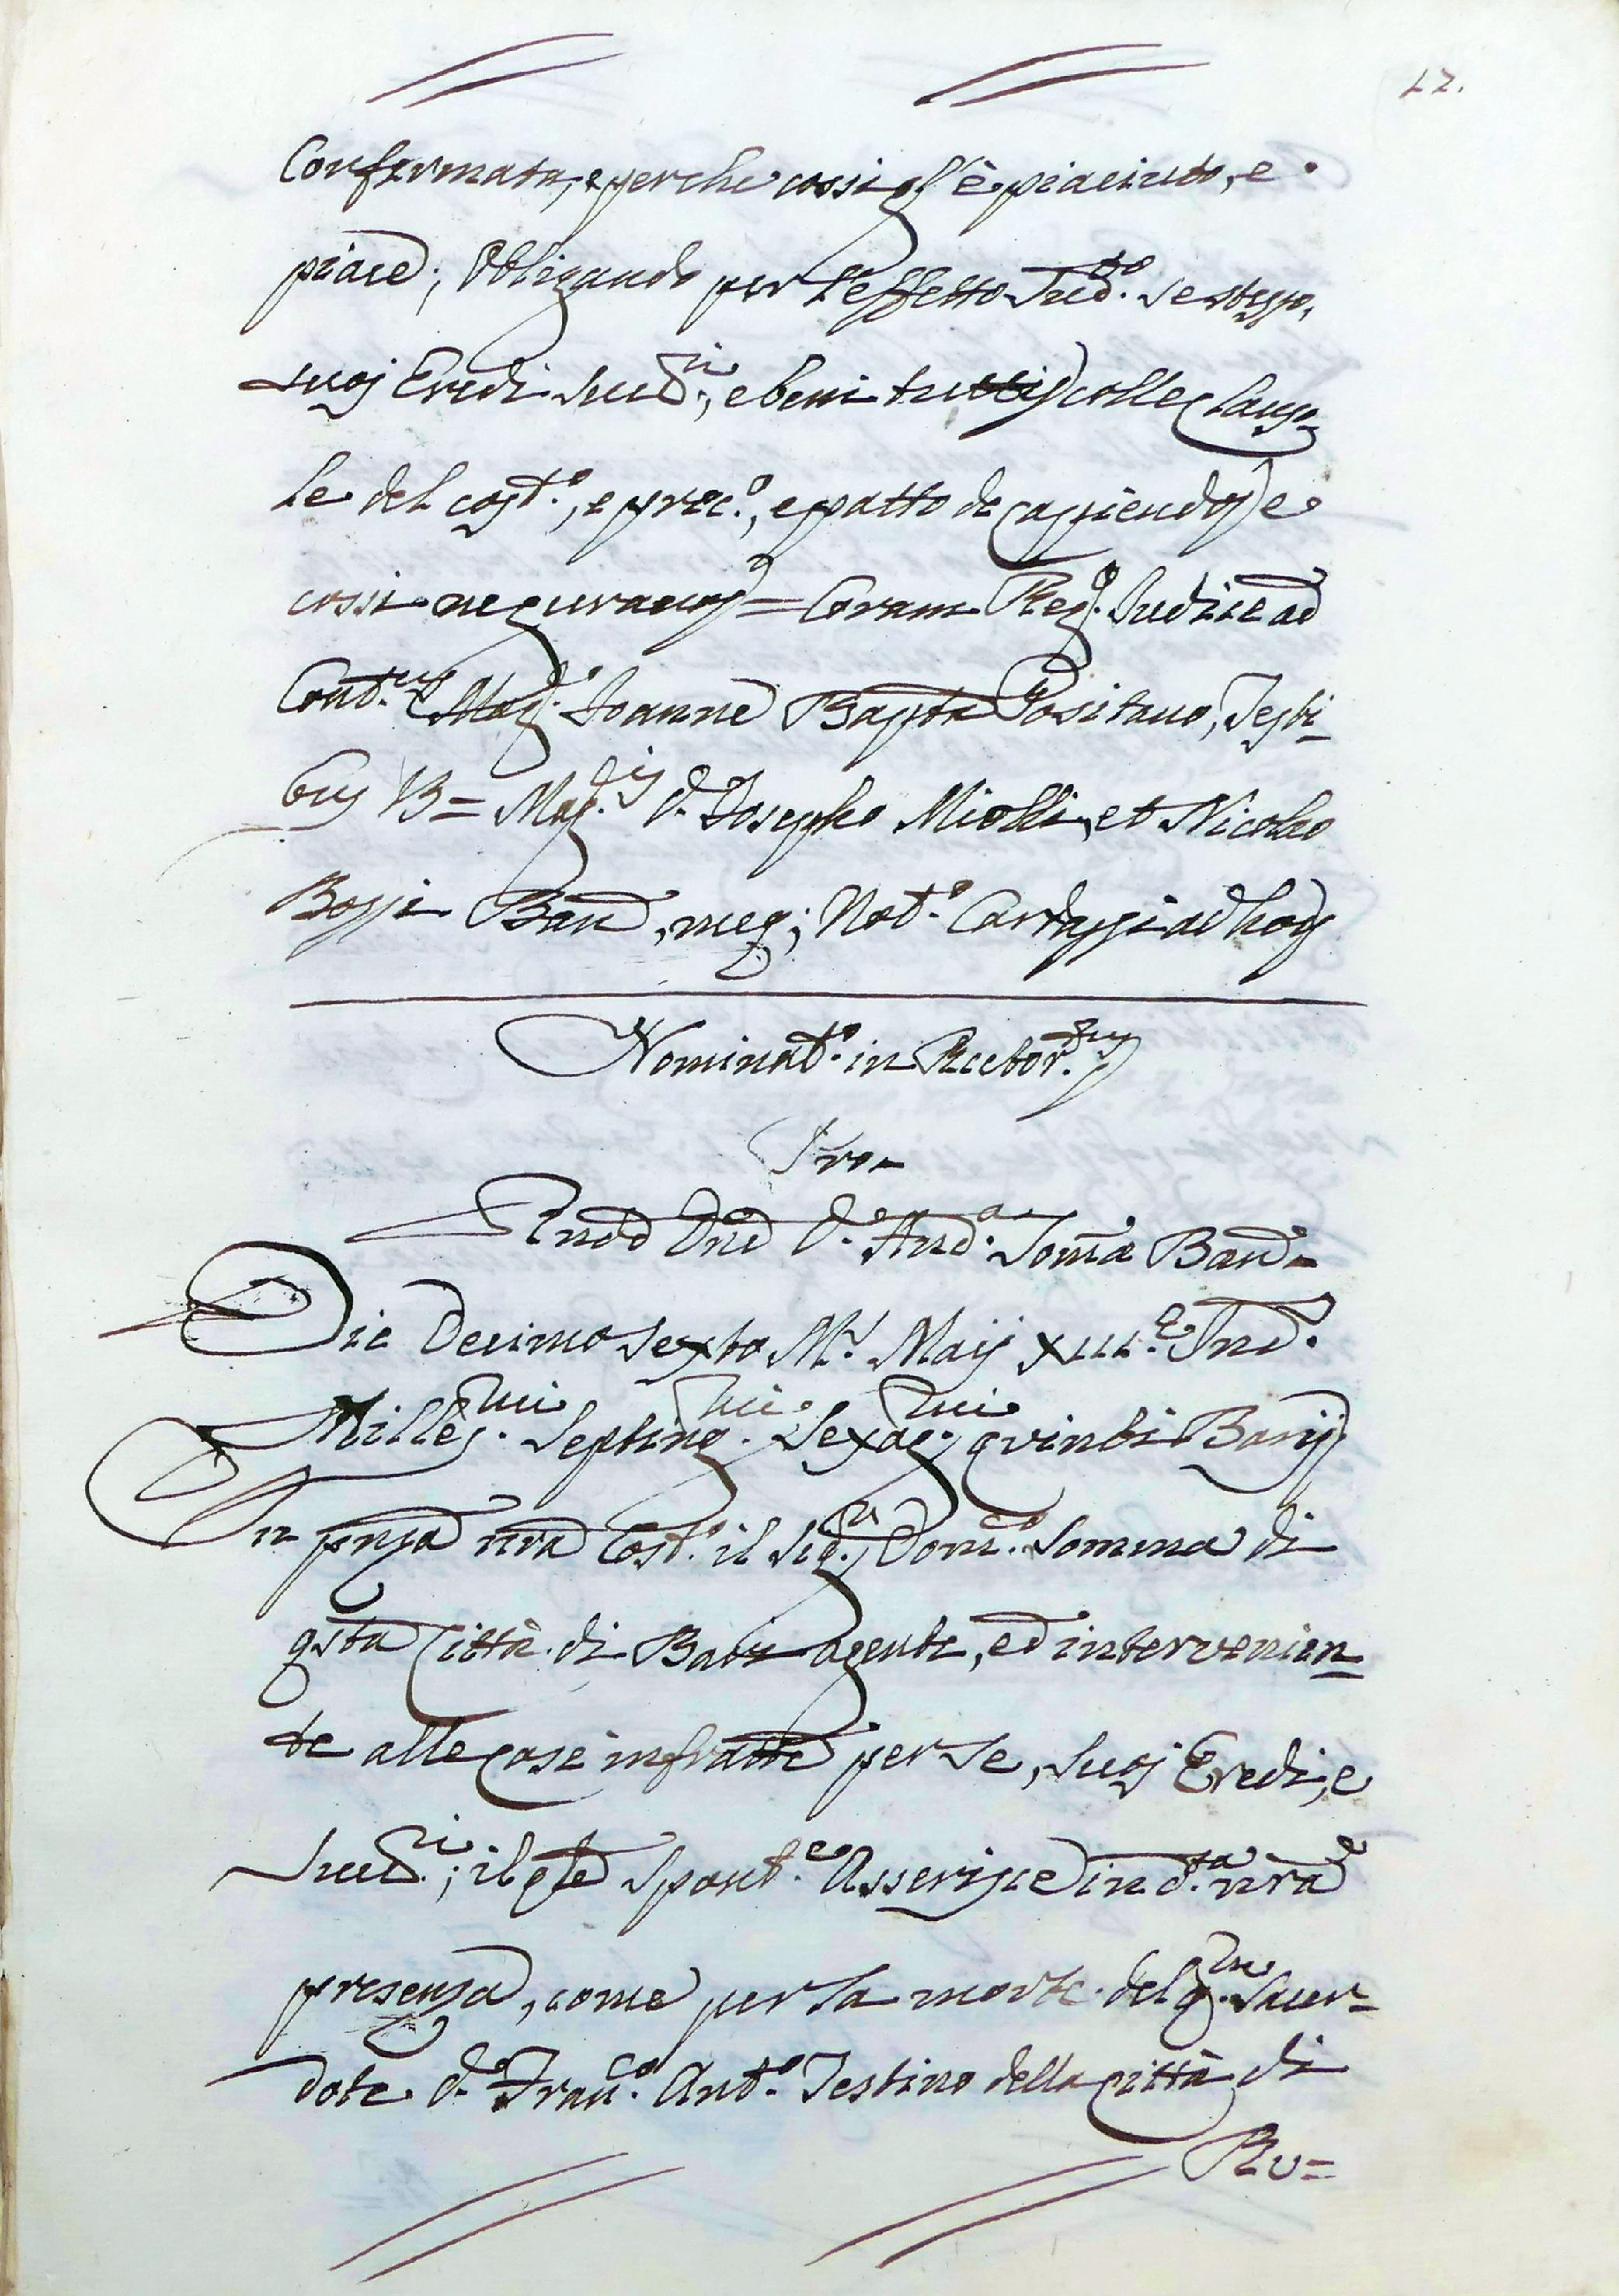 22.
Confermata, e perche cossi gl'è piaciuto, e
piace; Obligando per l'effetto sud.to se stesso,
suoj Eredi succ.ri, e beni tutti colle clauso-
le del cost.o, e prec.o, e patto de capiendo, e
cossi ne giurano = Coram Reg.o Judice ad
Cont.us Mag.o Joanne Bapta Positano, Testi-
bus V3 = Mag.cis D. Josepho Miolli, et Nicolao
Bossi Baren, meq; Not.o Cardassi ad hoc
Nominat.o in Rector.em
Pro
Rndo Dno D. And.a Somma Baren
Die Decimo sexto M.s Maij XIII.e Ind.
Milles.mi Septing.mi Sexag.mi quinti Barij
In pnza nra Cost.o il Sig.r Dom.co Somma di
qsta Città di Bari agente, ed intervenien-
te alle cose infratte per se, suoj Eredi, e
succ.ri; il qle spont.e Asserisce in d.ta nra
presenza, come per la morte del q.m Sacer-
dote D. Fran.co Ant.o Testino della città di
Ru=